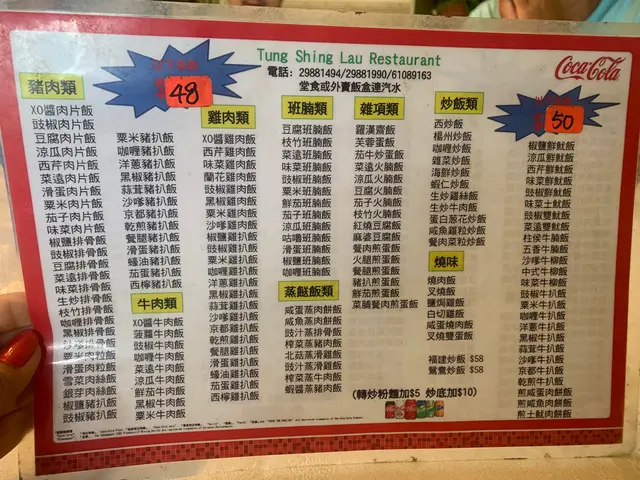 Tung Shing Lau Restaurant
電話: 29881494/29881990/61089163
堂食或外賣飯盒連汽水
Coca-Cola
48
50
豬肉類
XO醬肉片飯
豉椒肉片飯
豆腐肉片飯
涼瓜肉片飯
西芹肉片飯
菜遠肉片飯
滑蛋肉片飯
粟米肉片飯
茄子肉片飯
味菜肉片飯
椒鹽排骨飯
豉椒排骨飯
豆腐排骨飯
菜遠排骨飯
味菜排骨飯
生炒排骨飯
枝竹排骨飯
咖喱排骨飯
黑椒排骨飯
沙嗲排骨飯
粟米肉粒飯
滑蛋肉粒飯
雪菜肉絲飯
銀芽肉絲飯
椒鹽豬扒飯
豉椒豬扒飯
粟米豬扒飯
咖喱豬扒飯
洋蔥豬扒飯
黑椒豬扒飯
蒜茸豬扒飯
沙嗲豬扒飯
京都豬扒飯
乾煎豬扒飯
餐腿豬扒飯
滑蛋豬扒飯
蠔油豬扒飯
茄蛋豬扒飯
西檸豬扒飯
牛肉類
XO醬牛肉飯
菠蘿牛肉飯
豉椒牛肉飯
咖喱牛肉飯
滑蛋牛肉飯
菜遠牛肉飯
涼瓜牛肉飯
鮮茄牛肉飯
黑椒牛肉飯
粟米牛肉飯
雞肉類
XO醬雞肉飯
西芹雞肉飯
味菜雞肉飯
蘭花雞肉飯
豉椒雞肉飯
黑椒雞肉飯
粟米雞肉飯
沙嗲雞肉飯
椒鹽雞扒飯
豉椒雞扒飯
粟米雞扒飯
咖喱雞扒飯
洋蔥雞扒飯
黑椒雞扒飯
蒜茸雞扒飯
沙嗲雞扒飯
京都雞扒飯
乾煎雞扒飯
餐腿雞扒飯
滑蛋雞扒飯
蠔油雞扒飯
茄蛋雞扒飯
西檸雞扒飯
班腩類
豆腐班腩飯
枝竹班腩飯
菜遠班腩飯
豉椒班腩飯
粟米班腩飯
鮮茄班腩飯
茄子班腩飯
涼瓜班腩飯
咕嚕班腩飯
滑蛋班腩飯
椒鹽班腩飯
咖喱班腩飯
蒸餸飯類
咸蛋蒸肉餅飯
咸魚蒸肉餅飯
豉汁蒸排骨飯
榨菜蒸肉餅飯
北菇蒸滑雞飯
豉汁蒸滑雞飯
榨菜蒸牛肉飯
蝦醬蒸豬肉飯
雜項類
羅漢齋飯
芙蓉蛋飯
茄牛炒蛋飯
菜遠火腩飯
涼瓜火腩飯
豆腐火腩飯
茄子火腩飯
枝竹火腩飯
紅燒豆腐飯
麻婆豆腐飯
餐肉煎蛋飯
火腿煎蛋飯
餐腿煎蛋飯
豬扒煎蛋飯
鮮茄煎蛋飯
菜脯餐肉煎蛋飯
炒飯類
西炒飯
楊州炒飯
咖喱炒飯
雜菜炒飯
海鮮炒飯
蝦仁炒飯
生炒雞絲飯
生炒牛肉飯
蛋白菜花炒飯
咸魚雞粒炒飯
餐肉菜粒炒飯
燒味
燒肉飯
叉燒飯
鹽焗雞飯
白切雞飯
咸蛋燒肉飯
叉燒雙蛋飯
福建炒飯 $58
鴛鴦炒飯 $58
(轉炒粉麵加$5 炒底加$10)
椒鹽鮮魷飯
涼瓜鮮魷飯
西芹鮮魷飯
味菜鮮魷飯
豉椒鮮魷飯
味菜土魷飯
豉椒雙魷飯
菜遠雙魷飯
柱侯牛腩飯
五香牛腩飯
沙嗲牛柳飯
中式牛柳飯
味菜牛柳飯
豉椒牛扒飯
粟米牛扒飯
咖喱牛扒飯
洋蔥牛扒飯
黑椒牛扒飯
蒜茸牛扒飯
沙嗲牛扒飯
京都牛扒飯
乾煎牛扒飯
煎咸蛋肉餅飯
煎咸魚肉餅飯
煎土魷肉餅飯